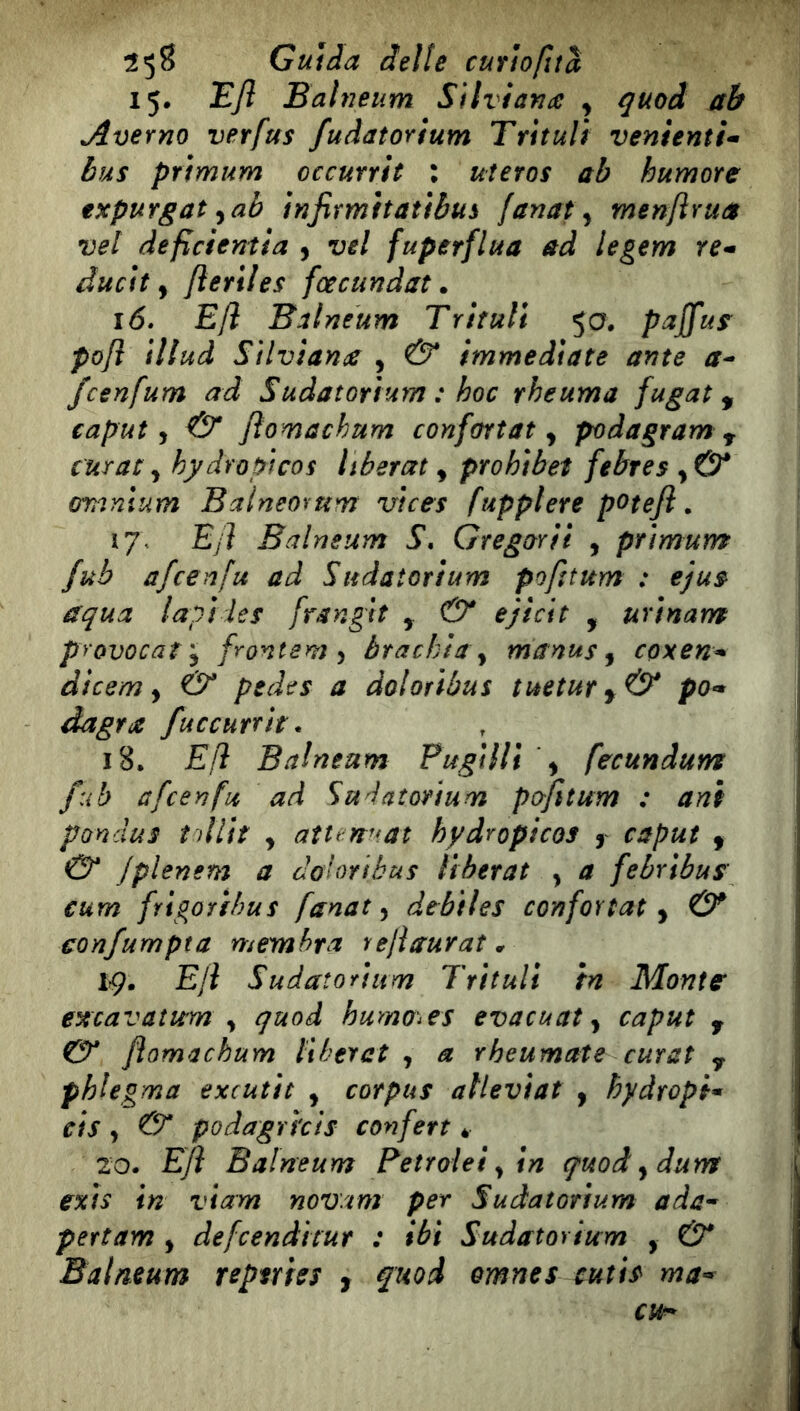 258 Guida delle curioſità
15. Eſt Balneum Silvianæ, quod ab
Averno verſus ſudatorium Trituli venienti-
bus primum occurrit : uteros ab humore
expurgat, ab infirmitatibus ſanat, menſtrua
vel deficientia, vel ſuperflua ad legem re-
ducit, ſteriles fœcundat.
16. Eſt Balneum Trituli 50. paſſus
poſt illud Silvianæ, & immediate ante a-
ſcenſum ad Sudatorium : hoc rheuma fugat,
caput, & ſtomachum confortat, podagram,
curat, hydropicos liberat, prohibet febres, &
omnium Balneorum vices ſupplere poteſt.
17. Eſt Balneum S. Gregorii, primum
ſub aſcenſu ad Sudatorium poſitum : ejus
aqua lapides frangit, & ejicit, urinam
provocat; frontem, brachia, manus, coxen-
dicem, & pedes a doloribus tuetur, & po-
dagræ ſuccurrit.
18. Eſt Balneum Pugilli, ſecundum
ſub aſcenſu ad Sudatorium poſitum : ani
pondus tollit, attenuat hydropicos, caput,
& ſplenem a doloribus liberat, a febribus
cum frigoribus ſanat, debiles confortat, &
conſumpta membra reſtaurat.
19. Eſt Sudatorium Trituli in Monte
excavatum, quod humores evacuat, caput,
& ſtomachum liberat, a rheumate curat,
phlegma excutit, corpus alleviat, hydropi-
cis, & podagricis confert.
20. Eſt Balneum Petrolei, in quod, dum
exis in viam novam per Sudatorium ada-
pertam, deſcenditur : ibi Sudatorium, &
Balneum reperies, quod omnes cutis ma-
cu-